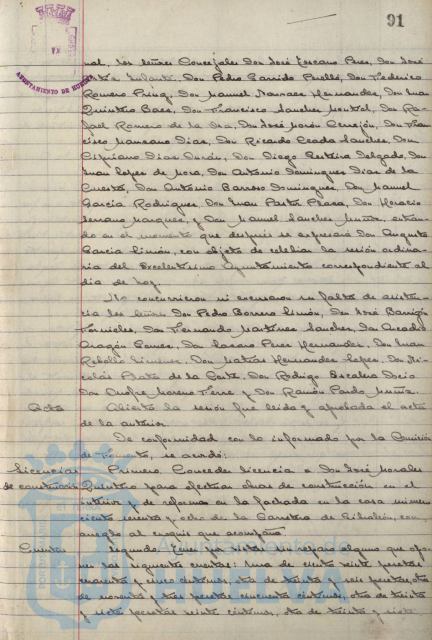 91
AYUNTAMIENTO DE HUELVA
nal, los señores Concejales Don José Lozcano Perez, Don José
Infante, Don Pedro Garrido Perelló, Don Federico
Romero Pring, Don Manuel Narvaez Hernandez, Don Juan
Quintero Baez, Don Francisco Sanchez Montiel, Don Ra-
fael Romero de la Osa, Don José Morón Cerrejón, Don Fran-
cisco Manzano Diaz, Don Ricardo Ceada Sanchez, Don
Cipriano Diaz Durán, Don Diego Delgado, Don
Juan Lopez de Mora, Don Antonio Dominguez Diaz de la
Cuesta, Don Antonio Barroso Dominguez, Don Manuel
Garcia Rodriguez, Don Juan Pastor Plaza, Don Horacio
Serrano Marquez, y Don Manuel Sanchez Muñiz, entran-
do en el momento que despues se expresará Don Augusto
Garcia Limón, con objeto de celebrar la sesión ordina-
ria del Excelentísimo Ayuntamiento correspondiente al
dia de hoy.
No concurrieron ni excusaron su falta de asisten-
cia los señores Don Pedro Borrero Limón, Don José Barrigón
Fornieles, Don Fernando Martinez Sanchez, Don Arcadio
Aragón Gomez, Don Lazaro Perez Hernandez, Don Juan
Rebollo Jimenez, Don Matias Hernandez Lopez, Don Ni-
colás de la Corte, Don Rodrigo Escalera
Don Onofre Moreno y Don Ramón Pardo Muñiz.
Acta Abierta la sesión fué leida y aprobada el acta
de la anterior.
De conformidad con lo informado por la Comisión
de Fomento, se acordó:
Licencias Primero. Conceder licencia a Don José Morales
de construccion Quintero para efectuar obras de construcción en el
interior y de reforma en la fachada en la casa número
ciento sesenta y ocho de la Carretera de Gibraleón, con
arreglo al croquis que acompaña.
Cuentas Segundo. sin reparo alguno que opo-
ner las siguientes cuentas: Una de ciento veinte pesetas
cuarenta y cinco centimos, otra de treinta y seis pesetas, otra
de noventa y tres pesetas cincuenta centimos, otra de treinta
y siete pesetas veinte centimos, otra de treinta y siete